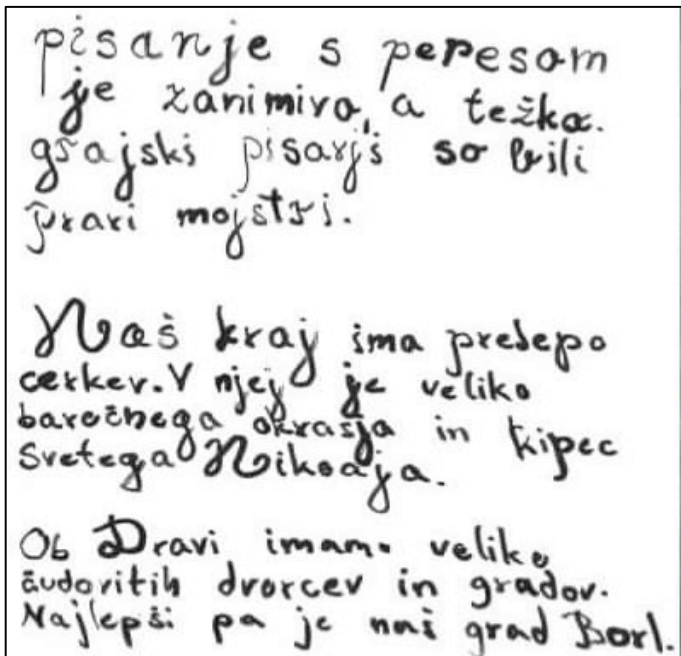 pisanje s peresom
je zanimivo, a težko.
grajski pisarji so bili
pravi mojstri.
Naš kraj ima prelepo
cerkev. V njej je veliko
baročnega okrasja in kipec
Svetega Nikolaja.
Ob Dravi imamo veliko
čudovitih dvorcev in gradov.
Najlepši pa je naš grad Borl.